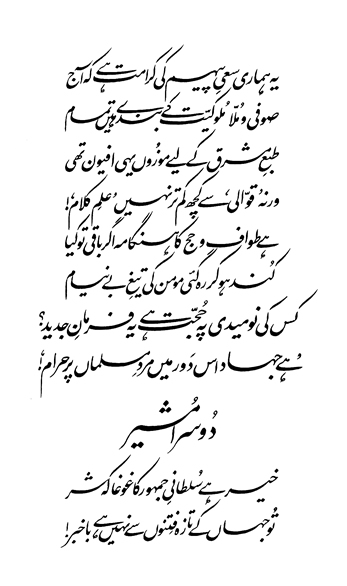 یہ ہماری سعیِ پیہم کی کرامت ہے کہ آج
صوفی و مُلّا ملوکیّت کے بندے ہیں تمام
طبعِ مشرق کے لیے موزوں یہی افیون تھی
ورنہ ’قوّالی‘ سے کچھ کم تر نہیں ’علمِ کلام‘!
ہے طواف و حج کا ہنگامہ اگر باقی تو کیا
کُند ہو کر رہ گئی مومن کی تیغِ بے نیام
کس کی نومیدی پہ حُجّت ہے یہ فرمانِ جدید؟
’ہے جہاد اس دَور میں مردِ مسلماں پر حرام‘!
دُوسرا مُشیر
خیر ہے سُلطانیِ جمہور کا غوغا کہ شر
تُو جہاں کے تازہ فِتنوں سے نہیں ہے باخبر!